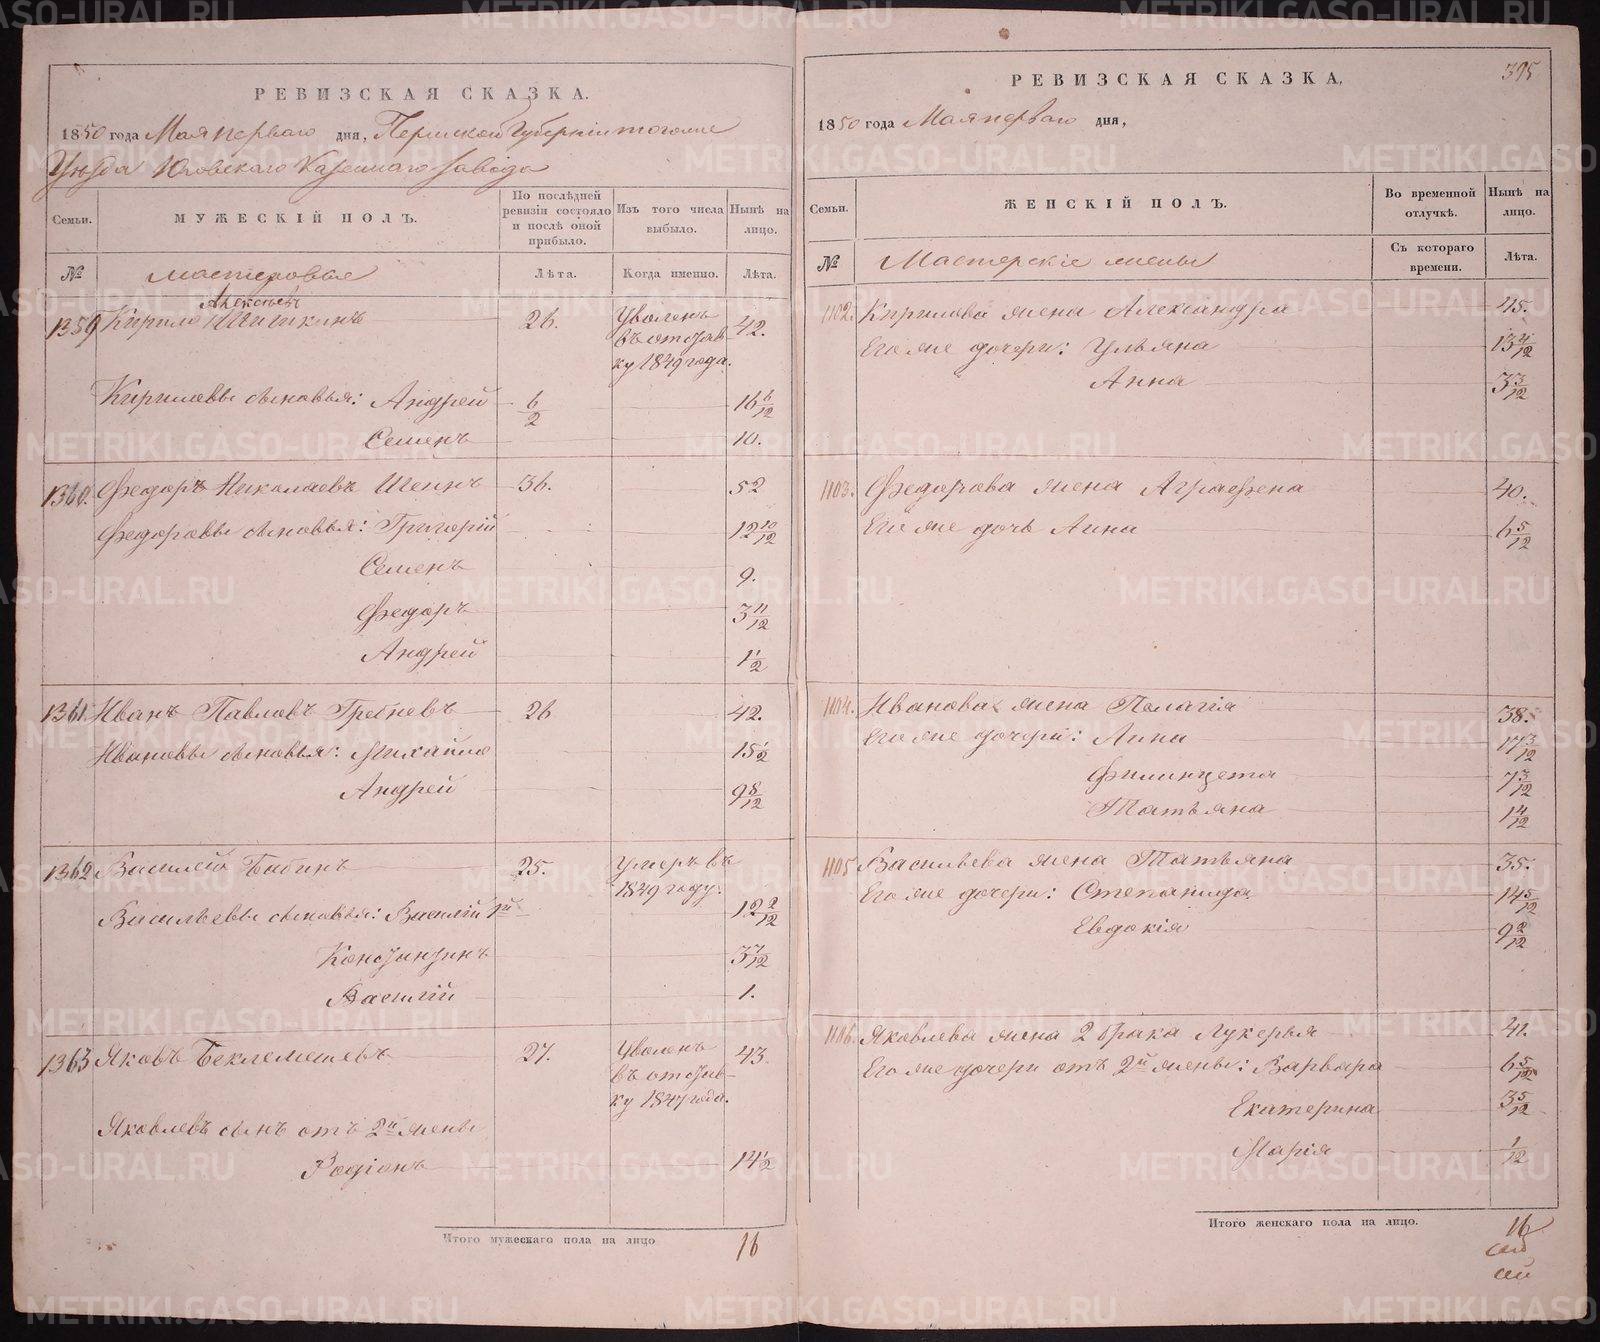 РЕВИЗСКАЯ СКАЗКА.
1850 года Мая перваго дня, Пермской Губерніи тогоже
Уѣзда Юговскаго Казеннаго завода
Семьи. МУЖЕСКІЙ ПОЛЪ. По послѣдней ревизіи состояло и послѣ оной прибыло. Изъ того числа выбыло. Нынѣ на лицо.
№ мастеровые Лѣта. Когда именно. Лѣта.
Алексѣевъ
1359 Кирило Шишкинъ 26. Уволенъ въ отставку 1849 года. 42.
Кириловы сыновья: Андрей 6/2 16 6/12
Семенъ 10.
1360. Федоръ Николаевъ Шеинъ 36. 52
Федоровы сыновья: Григорій 12 10/12
Семенъ 9.
Федоръ 3 11/12
Андрей 1 1/2
1361. Иванъ Павловъ Гребневъ 26 42.
Ивановы сыновья: Михайло 15 1/2
Андрей 9 8/12
1362 Василій Бабинъ 25. Умеръ въ 1849 году.
Васильевы сыновья: Василій 1й 12 2/12
Констинтинъ 3 7/12
Василій 1.
1363 Яковъ Беклемешевъ 27. Уволенъ въ отставку 1847 года. 43.
Яковлевъ сынъ отъ 2й жены
Родіонъ 14 1/2
Итого мужескаго пола на лицо 16
395
РЕВИЗСКАЯ СКАЗКА,
1850 года Мая перваго дня,
Семьи. ЖЕНСКІЙ ПОЛЪ. Во временной отлучкѣ. Нынѣ на лицо.
№ Мастерскіе жены Съ котораго времени. Лѣта.
1102. Кирилова жена Александра 45.
Его же дочери: Ульяна 13 4/12
Анна 3 3/12
1103. Федорова жена Аграфена 40.
Его же дочь Анна 6 5/12
1104. Иванова жена Пелагія 38.
Его же дочери: Анна 17 3/12
Филицета 7 3/12
Татьяна 1 4/12
1105 Васильева жена Татьяна 35.
Его же дочери: Степанида 14 5/12
Евдокія 9 2/12
1106. Яковлева жена 2 брака Лукерья 41.
Его же дочери отъ 2й жены: Варвара 6 5/12
Екатерина 3 5/12
Марія 1/12
Итого женскаго пола на лицо. 16
METRIKI.GASO-URAL.RU